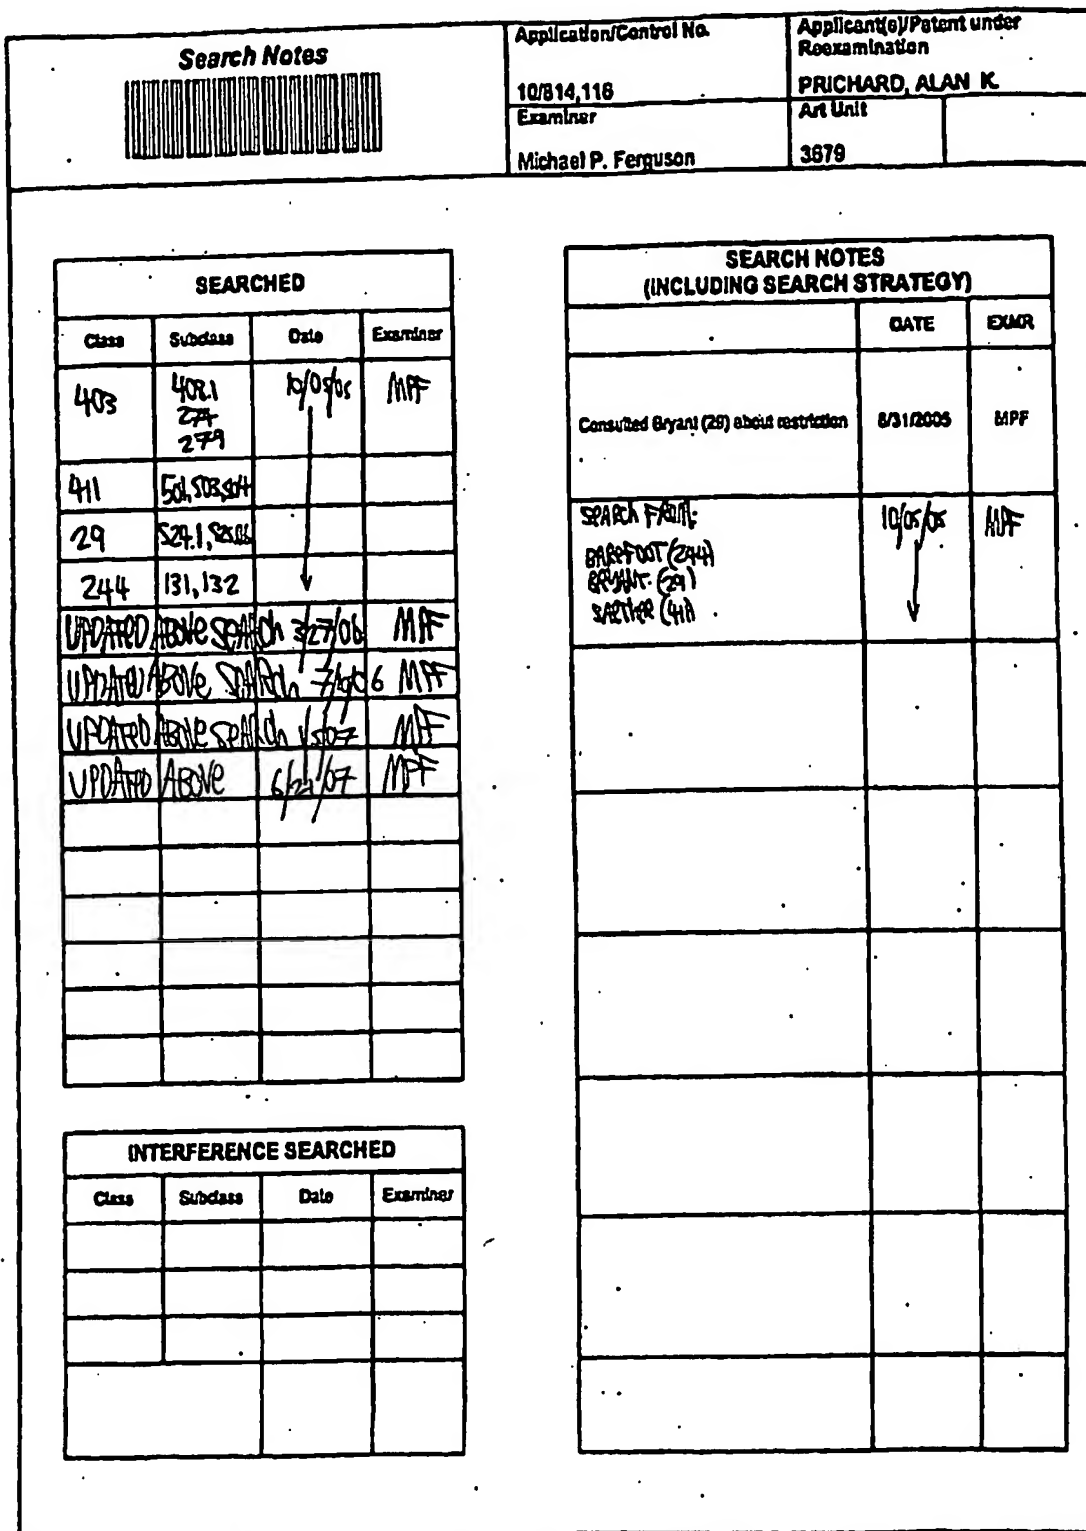 Search Notes
Application/Control No.
10/814,116
Applicant(s)/Patent under
Reexamination
PRICHARD, ALAN K.
Examiner
Michael P. Ferguson
Art Unit
3679
SEARCHED
Class Subclass Date Examiner
403 408.1 10/05/05 MPF
274
279
411 501,503,504
29 524.1,
244 131,132
UPDATED ABOVE SEARCH 3/27/06 MPF
UPDATED ABOVE SEARCH MPF
UPDATED ABOVE SEARCH 1/5/07 MPF
UPDATED ABOVE MPF
INTERFERENCE SEARCHED
Class Subclass Date Examiner
SEARCH NOTES
(INCLUDING SEARCH STRATEGY)
DATE EXMR
Consulted Bryant (29) about restriction 8/31/2005 MPF
SEARCH FROM: 10/05/05 MPF
BAREFOOT (244)
BRYANT (29)
(411)